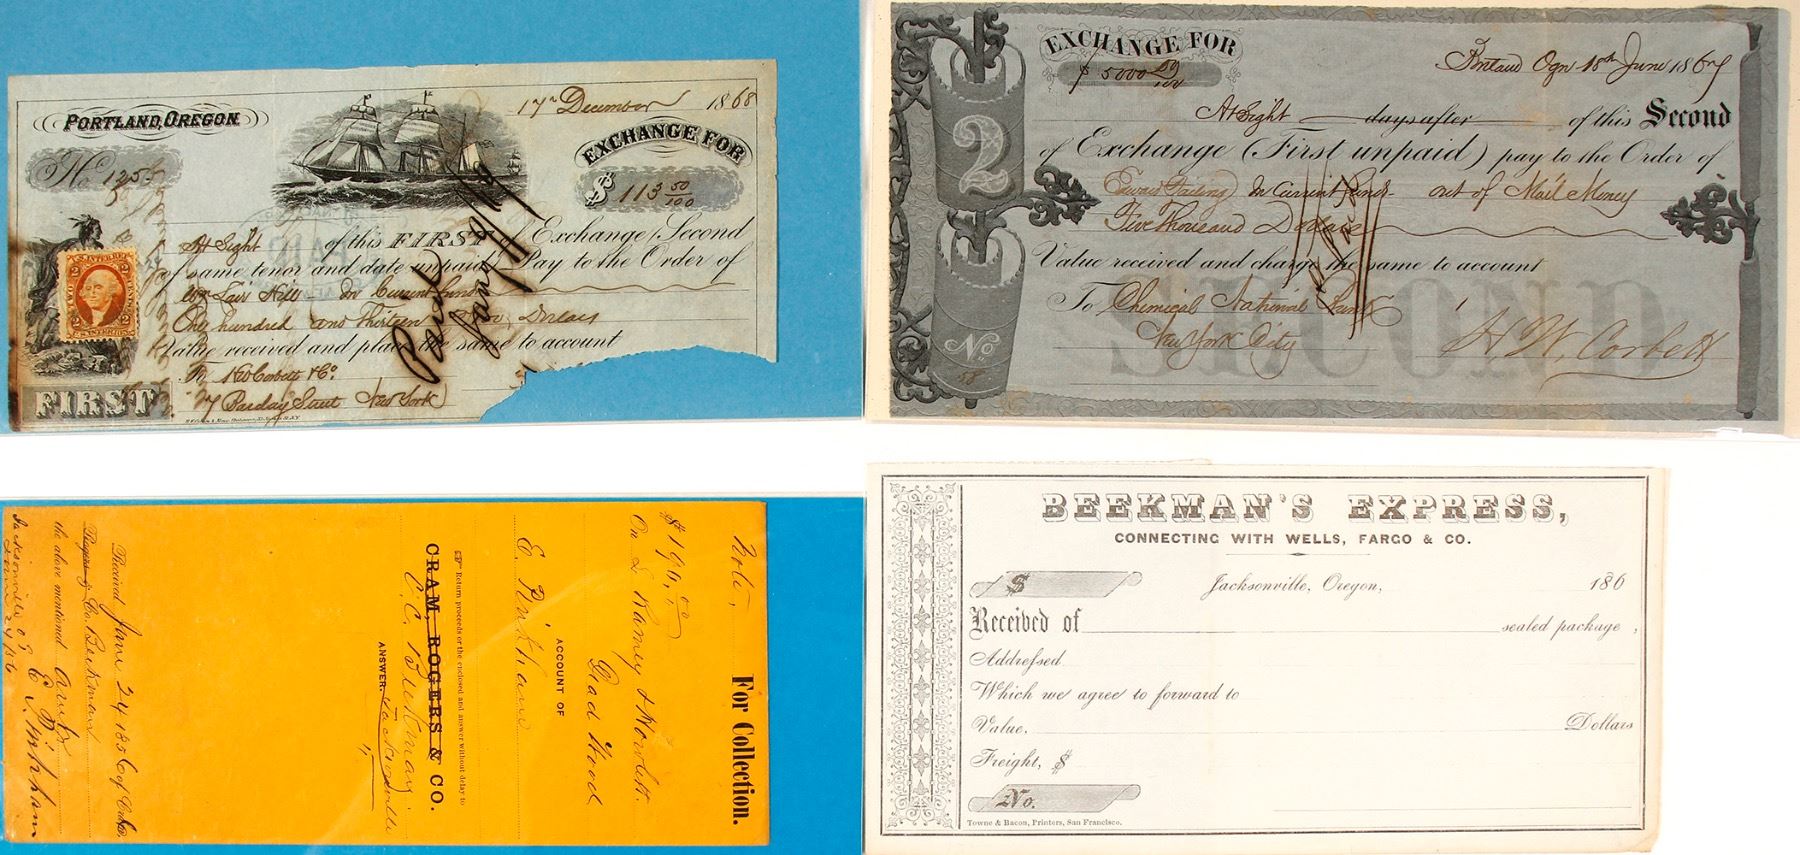 PORTLAND, OREGON
17th December 1868
No 1255
EXCHANGE FOR
$ 113 50/100
At Sight of this FIRST of Exchange (Second
of same tenor and date unpaid) Pay to the Order of
Wm Lair Hill In Current Funds
One hundred and Thirteen Dollars
Value received and place the same to account
To H W Corbett & Co
27 Barclay Street New York
FIRST
U.S. INTER. REV.
2 2
TWO CENTS
EXCHANGE FOR
$ 5000 00/100
Portland Ogn 18th June 1867
At Sight days after of this Second
of Exchange (First unpaid) pay to the Order of
2
In Current Funds out of Mail Money
Five Thousand Dollars
Value received and charge the same to account
To Chemical National Bank
New York City
H W, Corbett
No
58
SECOND
For Collection.
Note,
$ 190,00
On L Ramey &
ACCOUNT OF
E. Pinkham
Return proceeds or the enclosed and answer without delay to
CRAM, ROGERS & CO.
C. C. Beekman
ANSWER. Jacksonville
Received June 24 1856 of
Rogers & Co. Beekman
the above mentioned
E Pinkham
Jacksonville O T
June 24/56
BEEKMAN'S EXPRESS,
CONNECTING WITH WELLS, FARGO & CO.
$ Jacksonville, Oregon, 186
Received of sealed package,
Addressed
Which we agree to forward to
Value, Dollars
Freight, $
No.
Towne & Bacon, Printers, San Francisco.